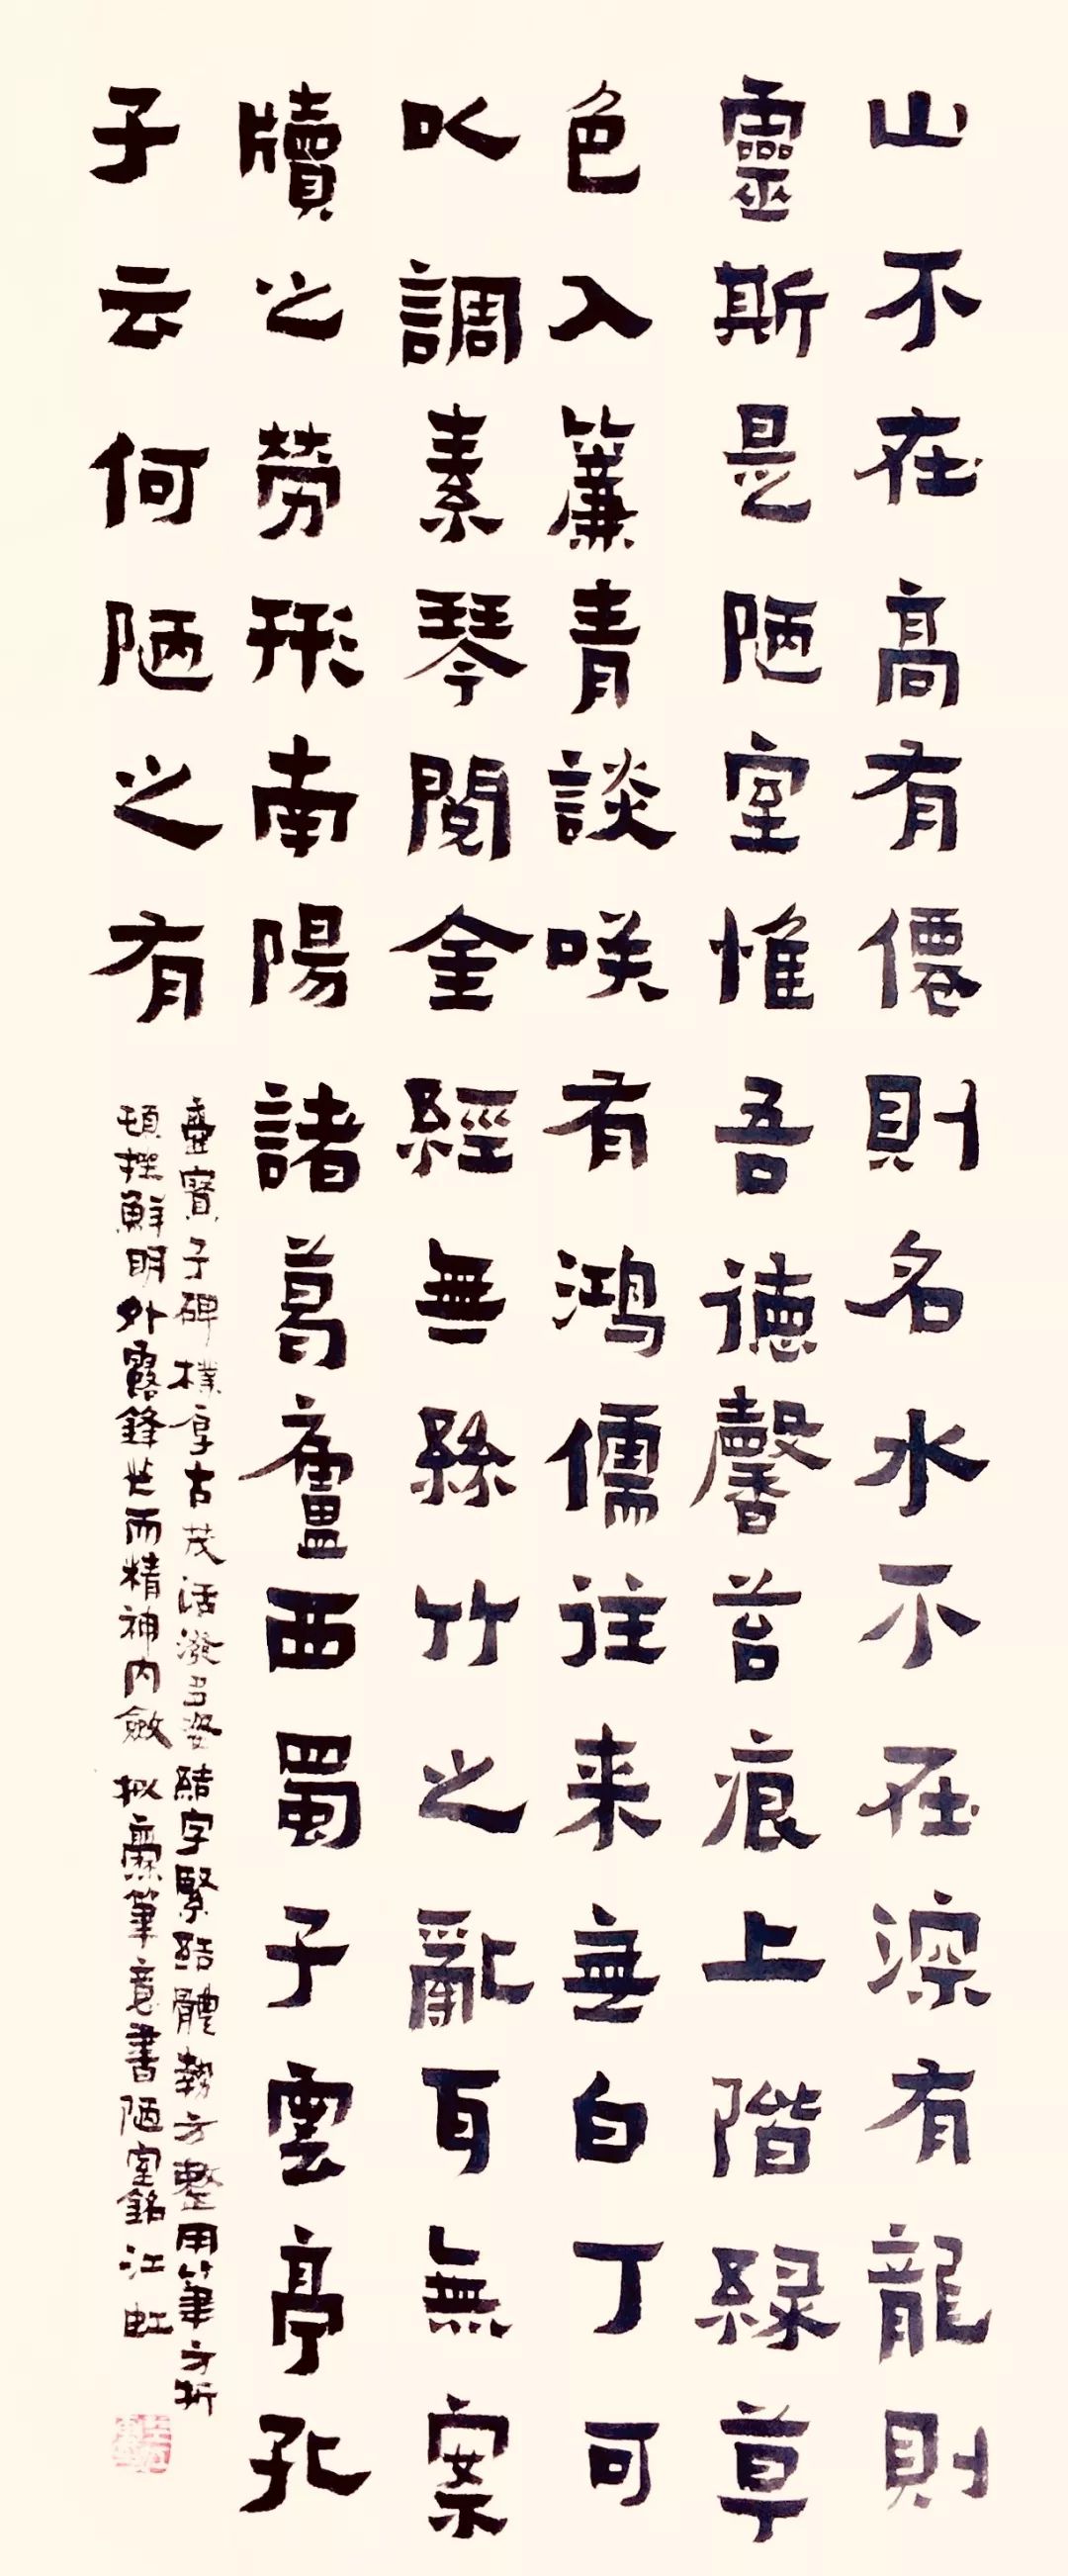 山不在高有僊則名水不在深有龍則
靈斯是陋室惟吾德馨苔痕上階緑草
色入簾青談咲有鸿儒往来無白丁可
以調素琴閲金經無絲竹之亂耳無案
牘之勞形南陽諸葛廬西蜀子雲亭孔
子云何陋之有
爨寳子碑樸厚古茂活潑多姿結字緊結體勢方整用筆方折
頓挫鮮明外露鋒芒而精神内斂拟爨筆意書陋室銘江虹